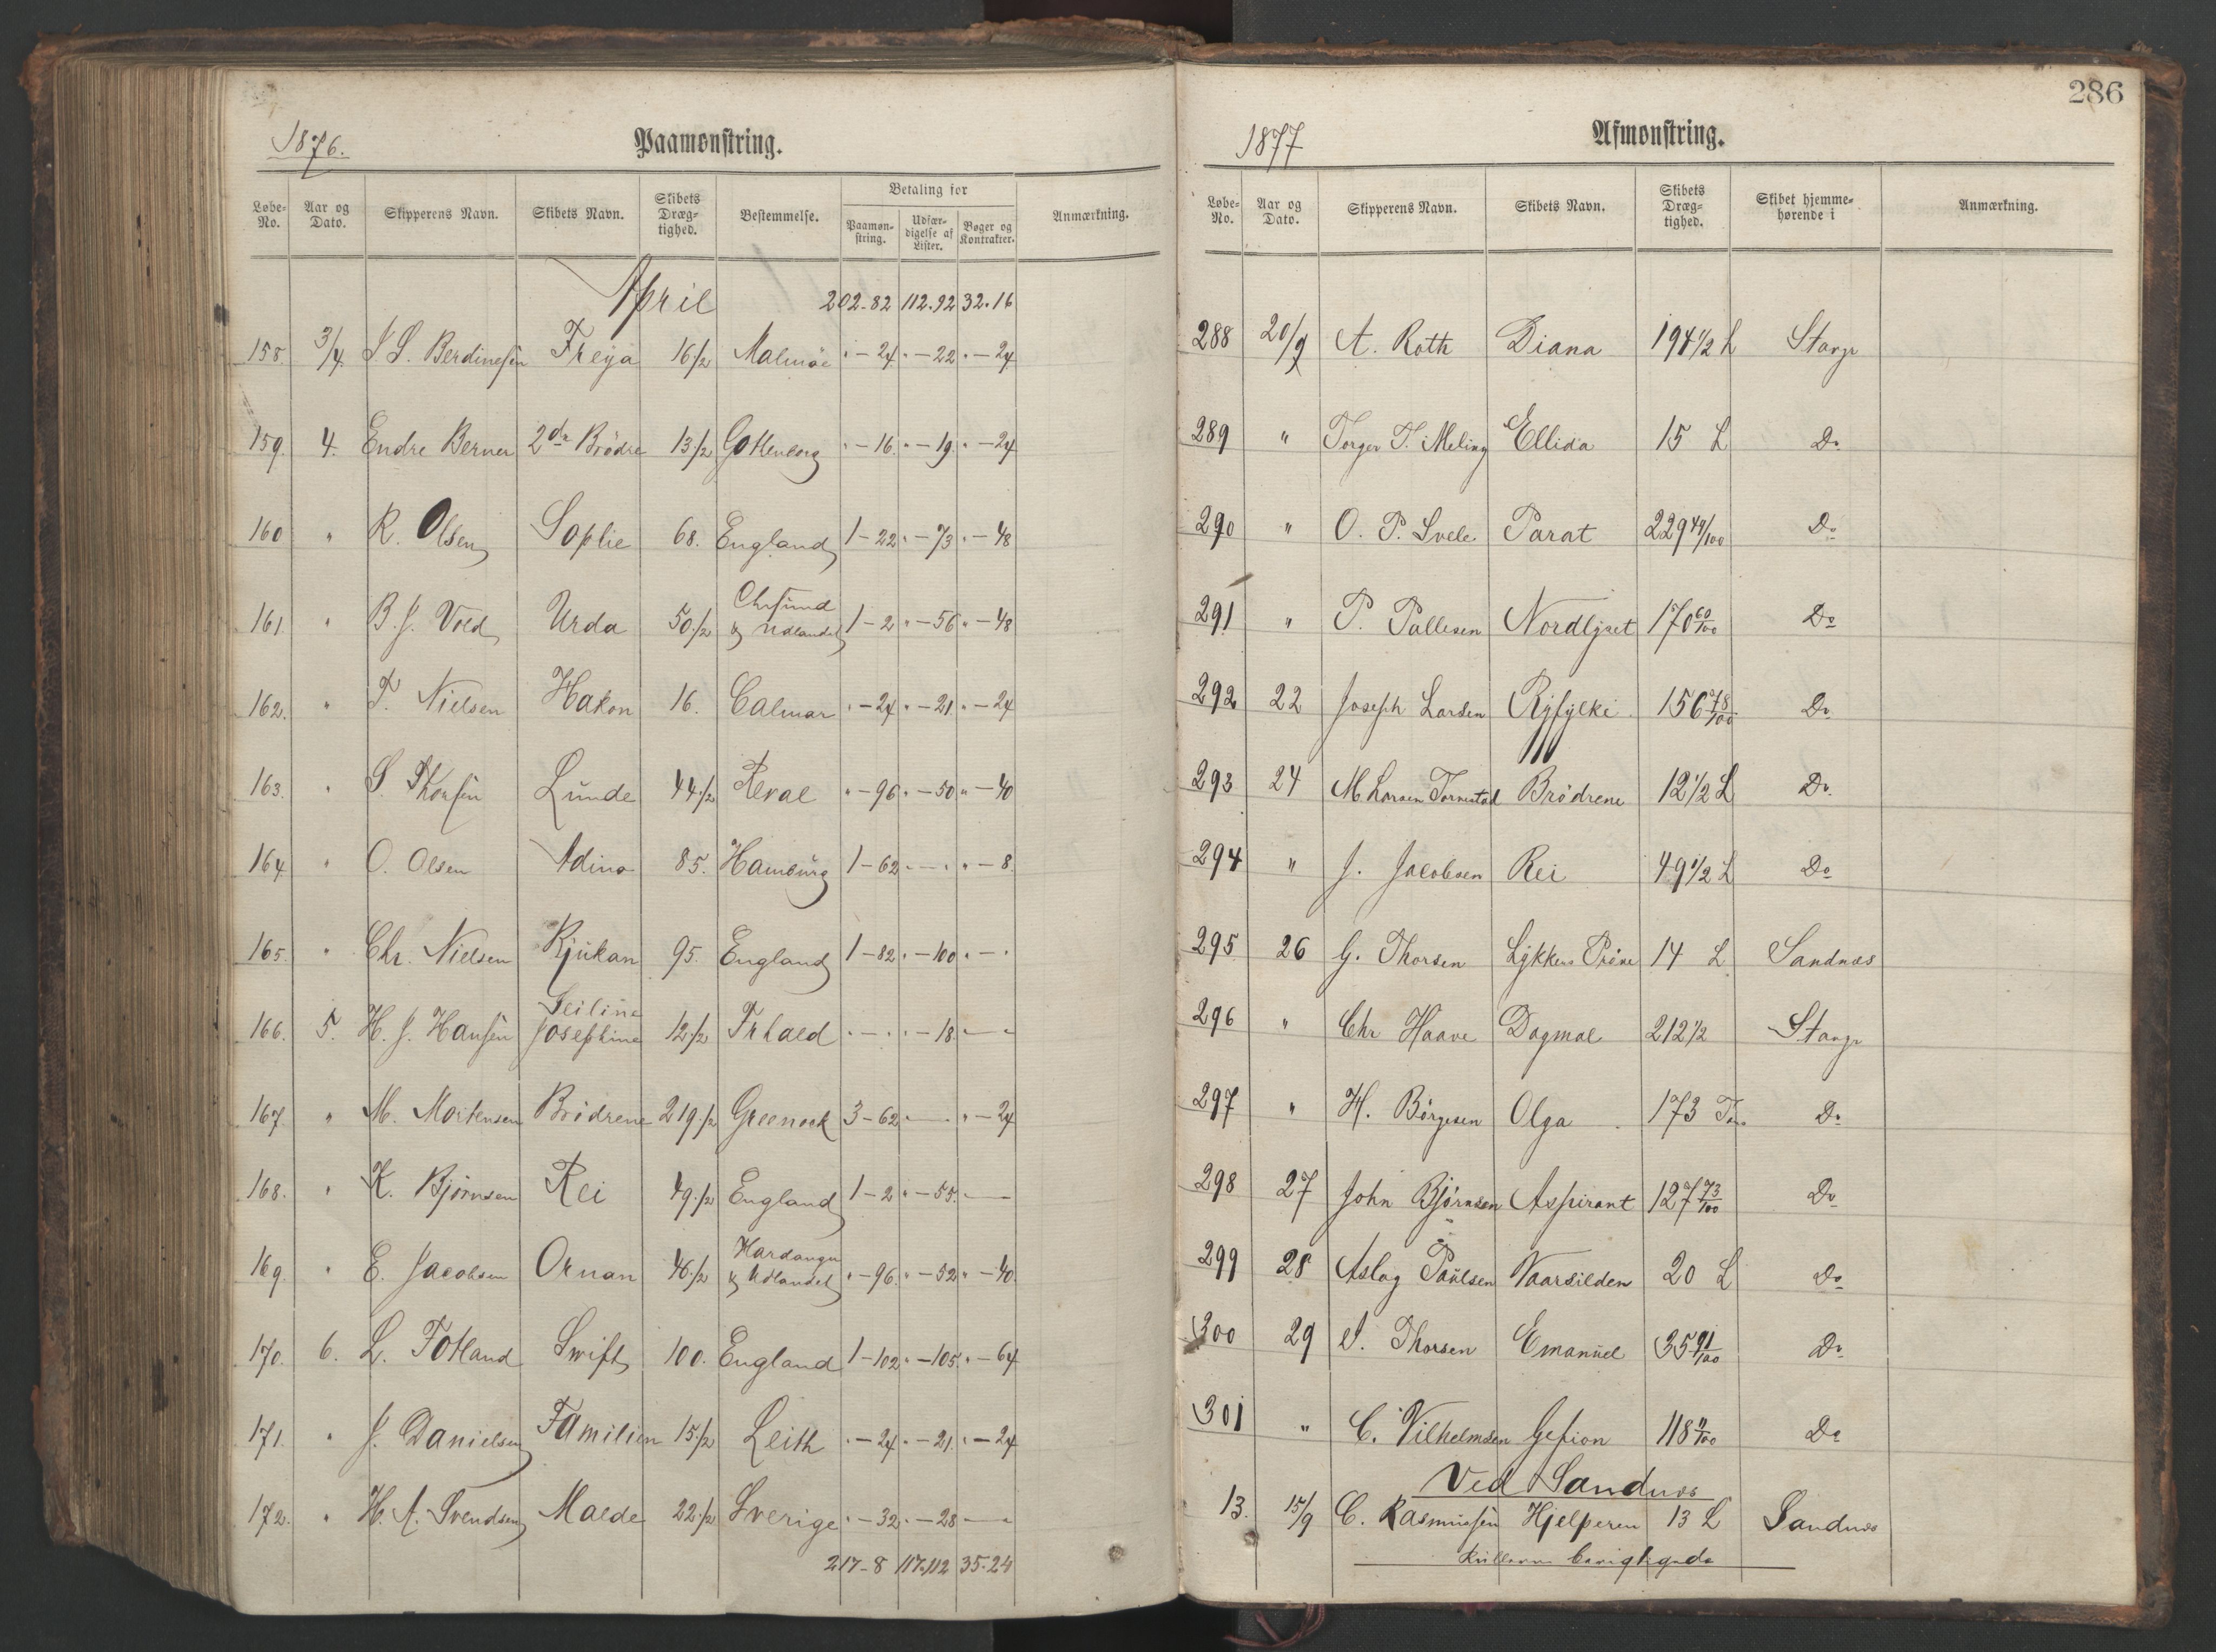 1876. Paamønstring.
Løbe-No. Aar og Dato. Skipperens Navn. Skibets Navn. Skibets Dræg-tighed. Bestemmelse. Betaling for Paamøn-string. Udfær-digelse af Lister. Bøger og Kontrakter. Anmærkning.
April 202-82 112.92 32.16
158. 3/4 Freya 16 1/2 Malmøe " - 24 " - 22 " - 24
159. 4. Endre Berner 2de Brødre 13 1/2 Gottenborg " - 16. " - 19. " - 24
160 " R. Olsen Sophie 68. England 1 - 22 " - 73 " - 48
161. " B. J. Vold Urda 50 1/2 Chrsund & Udlandet 1 - 2 " - 56 " - 48
162. " T. Nielsen Hakon 16. Calmar " - 24 " - 21 " - 24
163. " S. Thorsen Lunde 44 1/2 Reval " - 96 " - 50 " - 40
164 " O. Olsen Adino 85. Hamburg 1 - 62 " - " " - 8.
165. " Chr. Nielsen Rjukan 95. England 1 - 82 " - 100 " - "
166. 5. H. J. Hansen Josephine 12 1/2 Frhald " - " " - 18. " - "
167 " M. Mortensen Brødrene 219 1/2 Greenock 3 - 62 " - " " - 24
168. " K. Bjørnsen Rei 49 1/2 England 1 - 2 " - 55. " - "
169. " E. Jacobsen Ornan 46 1/2 Hardanger & Udlandet " - 96. " - 52 " - 40
170. 6. L. Fotland Swift 100. England 1 - 102 " - 105. " - 64
171. " J. Danielsen Familien 15 1/2 Leith " - 24 " - 21. " - 24
172. " H. A. Svendsen Malde 22 1/2 Sverige " - 32 " - 28 " - "
217-8 117.112 35.24
286
1877 Afmønstring.
Løbe-No. Aar og Dato. Skipperens Navn. Skibets Navn. Skibets Dræg-tighed. Skibet hjemme-hørende i Anmærkning.
288 20/9 A. Roth Diana 194 1/2 L Stavgr
289 " Torger T. Meling Ellida 15 L Do
290 " O. P. Svele Parat 229 49/100 Do
291 " P. Pallesen Nordlyset 170 60/100 Do
292 22 Joseph Larsen Ryfylke 156 78/100 Do
293 24 M Larsen Tornstad Brødrene 12 1/2 L Do
294 " J. Jacobsen Rei 49 1/2 L Do
295 26 G. Thorsen Lykkens Prøve 14 L Sandnæs
296 " Chr Haave Dagmal 212 1/2 Stavgr
297 " H. Børgesen Olga 173 Tons Do
298 27 John Bjørnsen Aspirant 127 73/100 Do
299 28 Aslag Paulsen Vaarsilden 20 L Do
300 29 S. Thorsen Emanuel 35 91/100 Do
301 " C. Vilhelmsen Gefion 118 Do
Ved Sandnæs
13. 15/9 C. Rasmussen Hjelperen 13 L Sandnæs